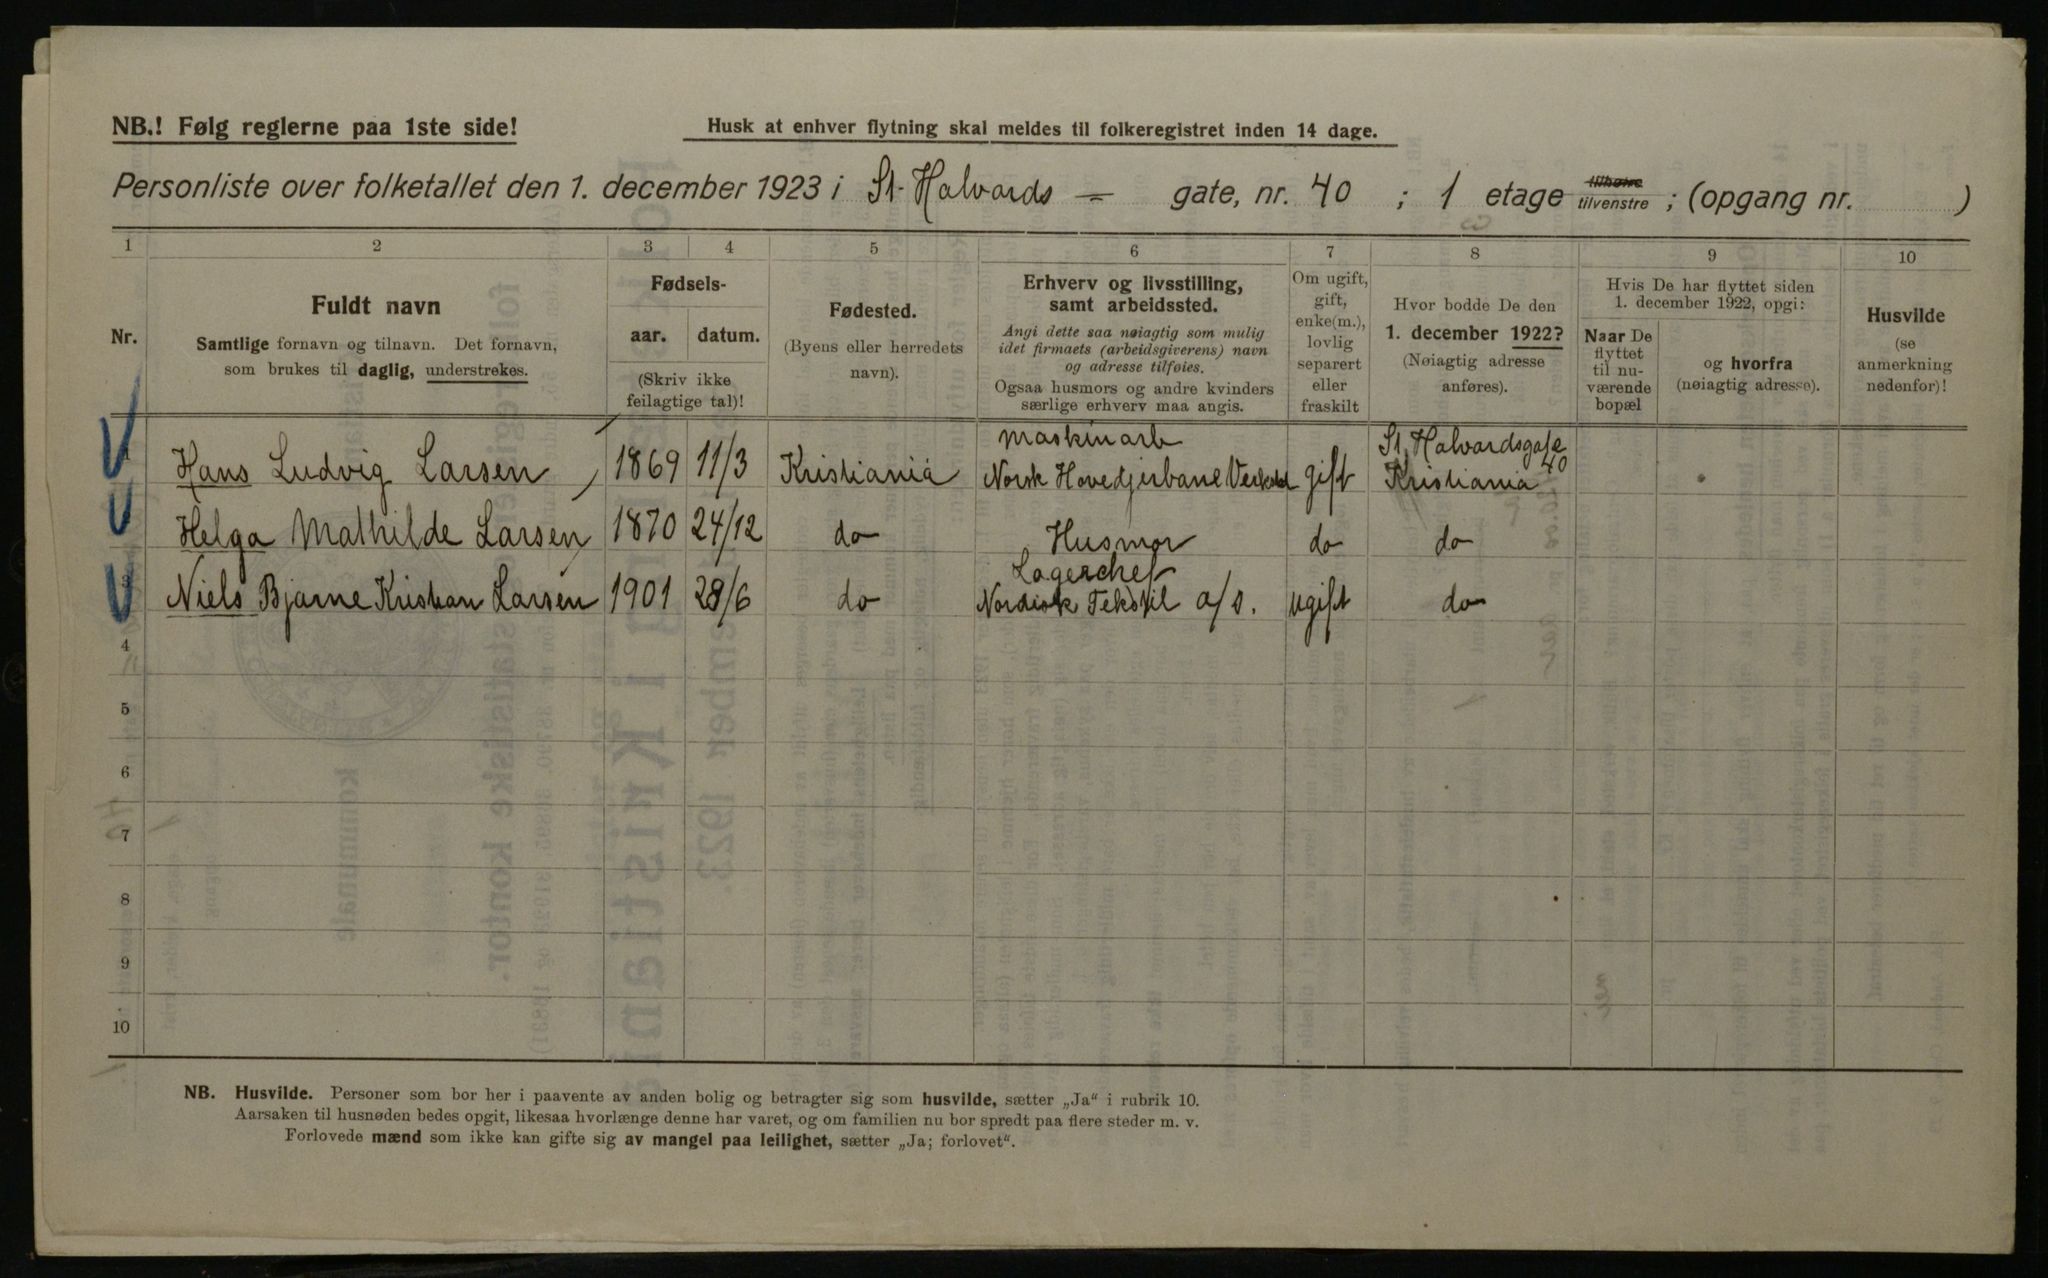 NB.! Følg reglerne paa 1ste side!
Husk at enhver flytning skal meldes til folkeregistret inden 14 dage.
Personliste over folketallet den 1. december 1923 i St. Halvards - gate, nr. 40 ; 1 etage tilhøire tilvenstre ; (opgang nr. )
1 2 3 4 5 6 7 8 9 10
Nr.
Fuldt navn
Samtlige fornavn og tilnavn. Det fornavn,
som brukes til daglig, understrekes.
Fødsels-
aar. datum.
(Skriv ikke
feilagtige tal)!
Fødested.
(Byens eller herredets
navn).
Erhverv og livsstilling,
samt arbeidssted.
Angi dette saa nøiagtig som mulig
idet firmaets (arbeidsgiverens) navn
og adresse tilføies.
Ogsaa husmors og andre kvinders
særlige erhverv maa angis.
Om ugift,
gift,
enke(m.),
lovlig
separert
eller
fraskilt
Hvor bodde De den
1. december 1922?
(Nøiagtig adresse
anføres).
Hvis De har flyttet siden
1. december 1922, opgi:
Naar De
flyttet
til nu-
værende
bopæl
og hvorfra
(nøiagtig adresse).
Husvilde
(se
anmerkning
nedenfor)!
maskinarb St. Halvardsgate 40
1 Hans Ludvig Larsen 1869 11/3 Kristiania Norsk Hovedjerbane Verksted gift Kristiania
Helga Mathilde Larsen 1870 24/12 do Husmor do do
Lagerchef
3 Niels Bjarne Kristian Larsen 1901 28/6 do Nordisk Tekstil a/s. ugift do
4
5
6
7
8
9
10
NB. Husvilde. Personer som bor her i paavente av anden bolig og betragter sig som husvilde, sætter „Ja“ i rubrik 10.
Aarsaken til husnøden bedes opgit, likesaa hvorlænge denne har varet, og om familien nu bor spredt paa flere steder m. v.
Forlovede mænd som ikke kan gifte sig av mangel paa leilighet, sætter „Ja; forlovet“.